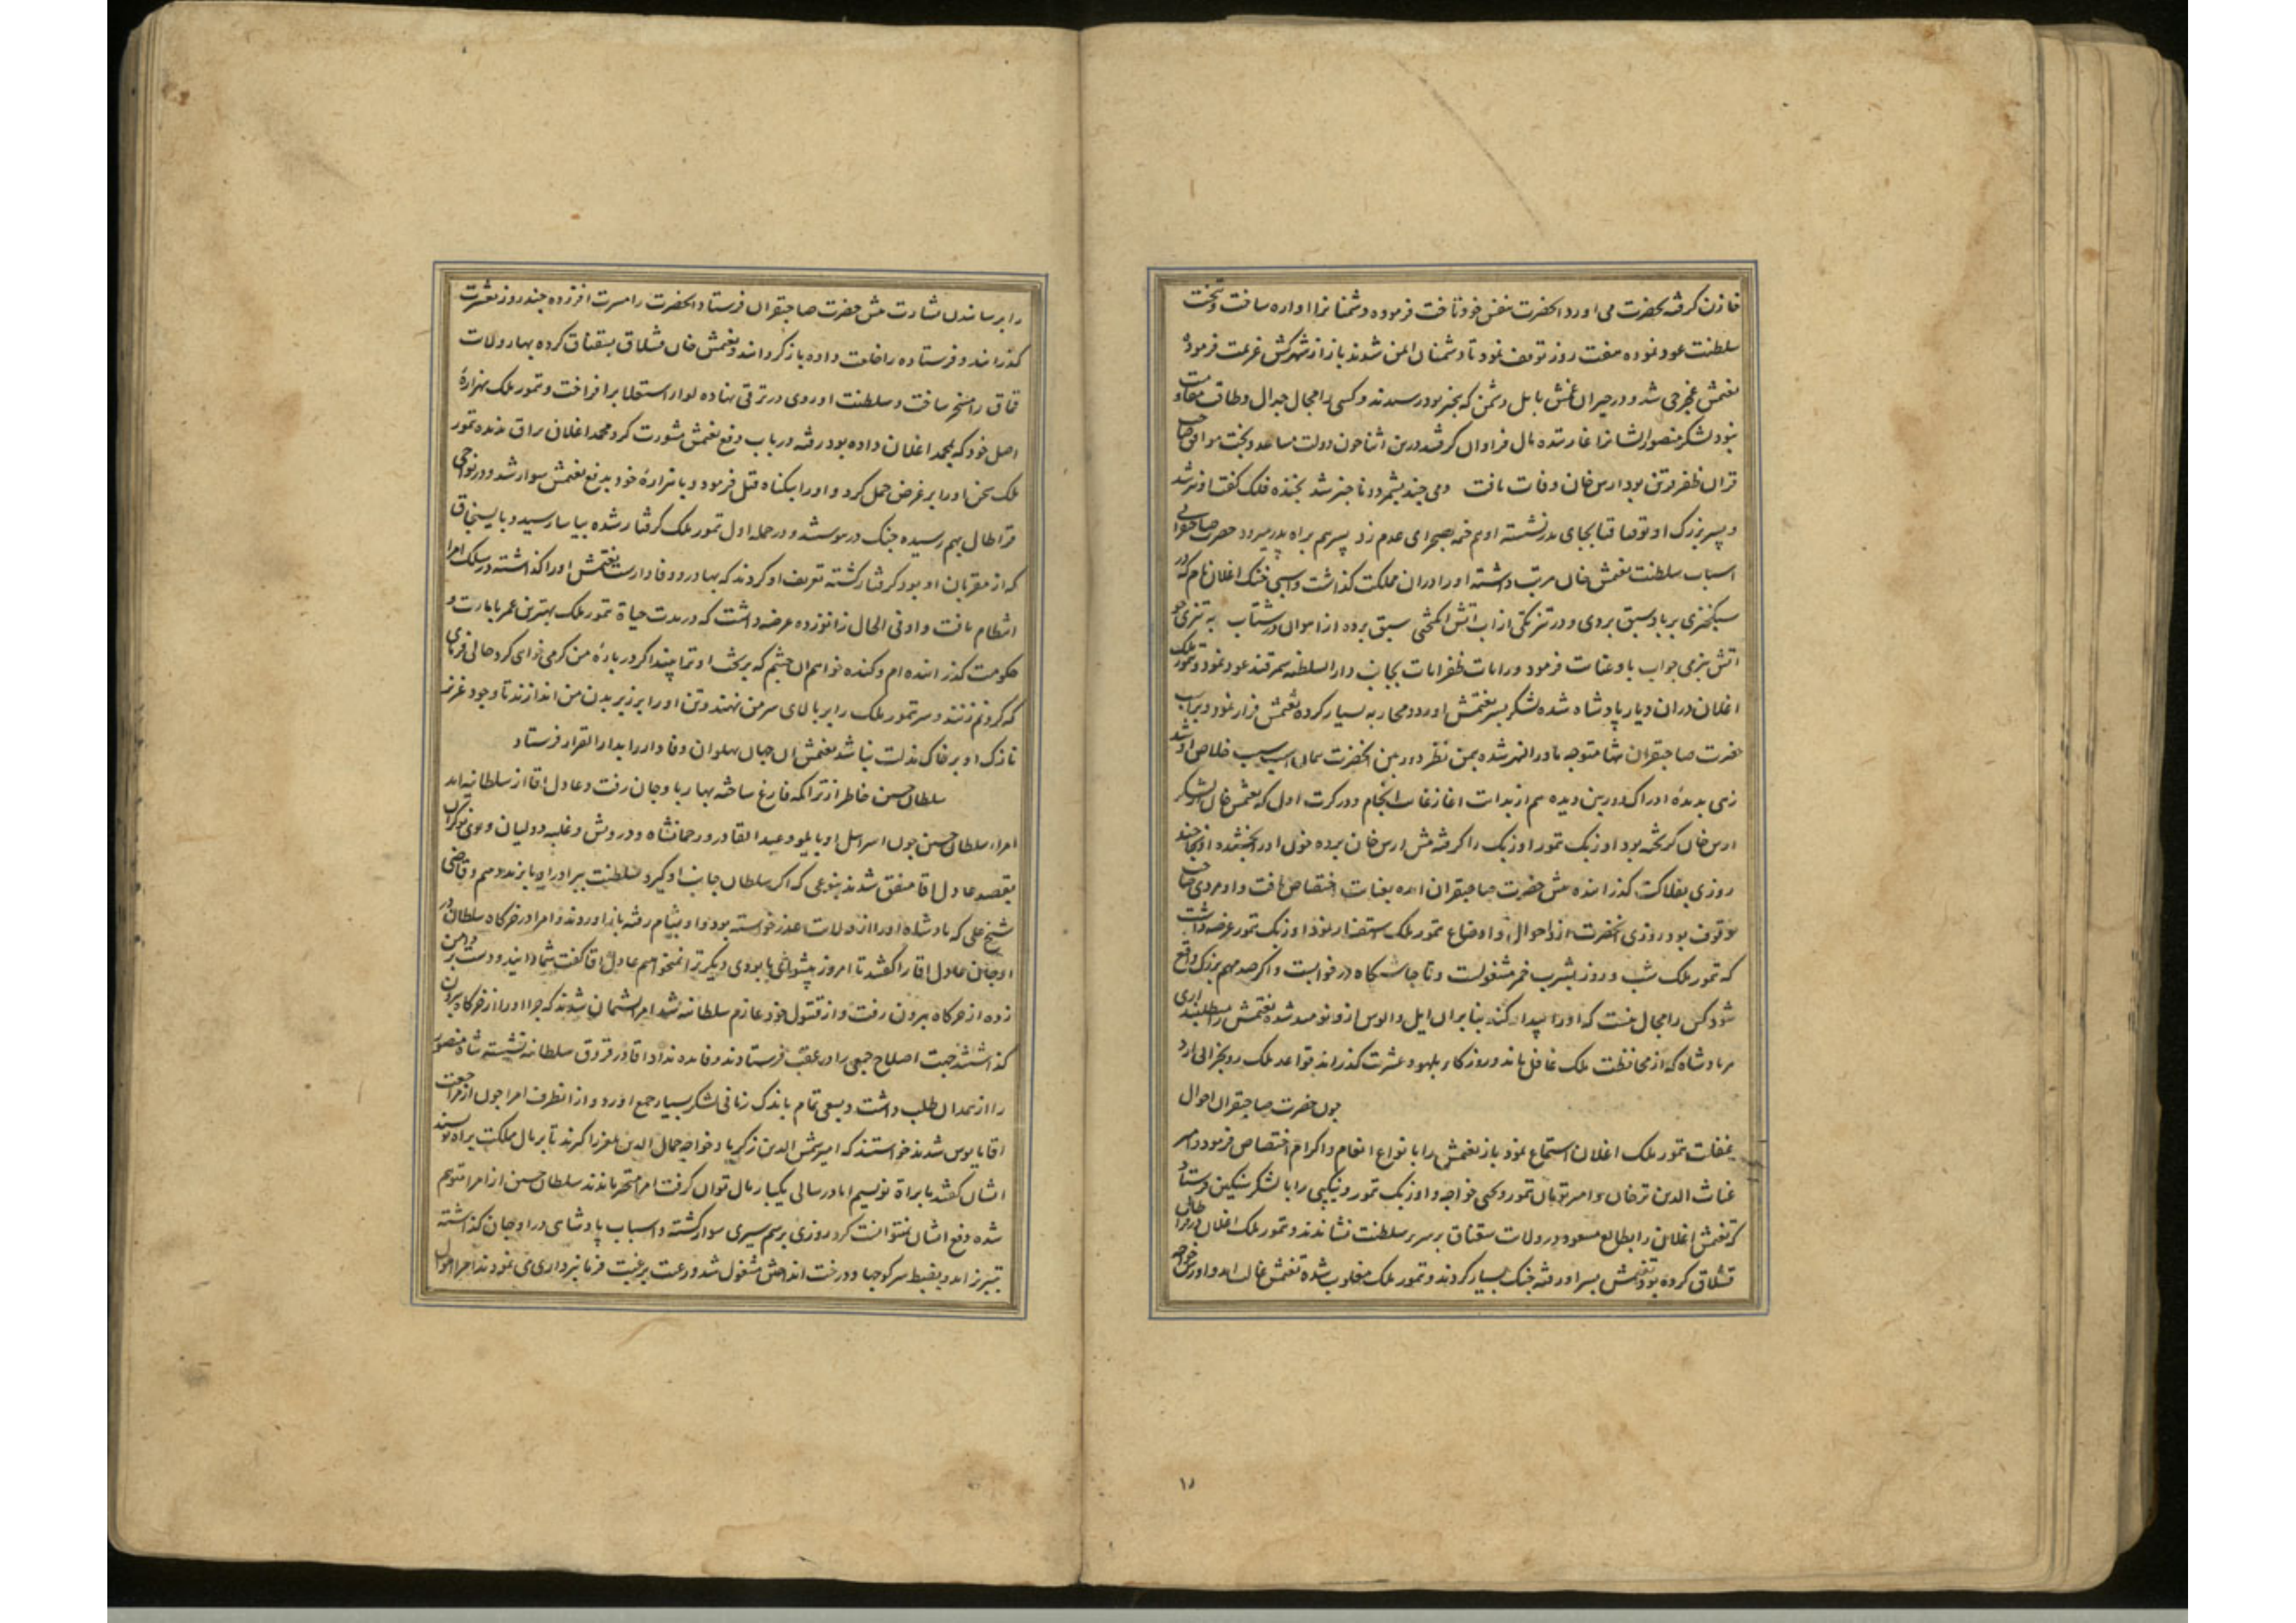 خازن گرفته بحضرت می اورد انحضرت بنفس خود تاخت فرموده دشمنانرا اواره ساخت و بتخت
سلطنت عود نموده هفت روز توقف نمود تا دشمنان ایمن شدند باز از شهر کش عزیمت فرمود
تغتمش غجرجی شد و در جیران بابل دشمن که بیخبر بود رسیدند و کسی را مجال جدال و طاقت مقاومت
نبود لشکر منصور ایشانرا غارتیده مال فراوان گرفتند درین اثنا چون دولت مساعد و بخت موافق صاحب
قران ظفر قرین بود ارس خان وفات یافت دمی چند بشمرد و ناچیز شد بخنده فلک گفت او نیز شد
و پسر بزرگ او توقتاقیا بجای پدر نشسته او هم خیمه بصحرای عدم زد پسر هم براه پدر میرود حضرت صاحبقرانی
اسباب سلطنت تغتمش خان مرتب داشته او را دران مملکت گذاشت و اسبی خنک اغلان نام که در
سبکخیزی بر باد سبق بردی و در تیزتکی از اب اتش انگیختی سبق برده از اهوان در شتاب به تیزی چو
اتش بنرمی چو اب باو عنایت فرمود و رایات ظفر ایات بجانب دار السلطنه سمرقند عود نمود و تمور ملک
اغلان دران دیار پادشاه شده لشکر بسر تغتمش اورد و محاربه بسیار کرده تغتمش فرار نمود و بر اسب
حضرت صاحبقران تنها متوجه ماورا النهر شده بیمن نظر دوربین انحضرت همان اسب سبب خلاص او شد
زهی بدیدهٔ ادراک دوربین دیده هم از بدایت اغاز غایت انجام و در کرت اول که تغتمش خان از لشکر
ارس خان گریخته بود اوزبک تمور اوزبک را گرفته پیش ارس خان برده خون او را بخشیده او نیز چند
روزی بفلاکت گذرانیده پیش حضرت صاحبقران امده بعنایت اختصاص یافت و او مردی صاحب
وقوف بود روزی انحضرت از احوال و اوضاع تمور ملک استفسار نمود اوزبک تمور عرضه داشت
که تمور ملک شب و روز بشرب خمر مشغولست و تا چاشتگاه در خوابست و اگر صد مهم بزرگ واقع
شود کس را مجال نیست که او را بیدار کند بنابران ایل و الوس از و نومید شده تغتمش را میطلبند اری
هر پادشاه که از محافظت ملک غافل ماند و روزگار بلهو و عشرت گذراند قواعد ملک رو بخرابی ارد
چون حضرت صاحبقران احوال
غفلت تمور ملک اغلان استماع نمود باز تغتمش را بانواع انعام و اکرام اختصاص فرمود و امیر
غیاث الدین ترخان و امیر تومان تمور و یحیی خواجه و اوزبک تمور و نیکپی را با لشکر سنگین فرستاد
که تغتمش اغلان را بطالع مسعود در ولایت سقناق بر سریر سلطنت نشاندند و تمور ملک اغلان در قراطال
قشلاق کرده بود تغتمش بسر او رفته جنگ بسیار کردند و تمور ملک مغلوب شده تغتمش غالب امد و اورس خواجه
را برسانیدن بشارت پیش حضرت صاحبقران فرستاد انحضرت را مسرت افزوده چند روز بعشرت
گذرانید و فرستاده را خلعت داده باز گردانید و تغتمش خان قشلاق بسقناق کرده بهار ولایت
قپاق را مسخر ساخت و سلطنت او روی در ترقی نهاده لوای استعلا بر افراخت و تمور ملک بهزارهٔ
اصل خود که بمحمد اغلان داده بود رفته در باب دفع تغتمش مشورت کرد محمد اغلان براق ندیده تمور
ملک سخن او را بر غرض حمل کرد و او را بیگناه قتل فرمود و با هزارهٔ خود بدفع تغتمش سوار شد و در نواحی
قراطال بهم رسیده جنگ در پیوستند و در حمله اول تمور ملک گرفتار شده بیاسا رسید و بایسنجاق
که از مقربان او بود گرفتار گشته تعریف او کردند که بهادر و وفادارست تغتمش او را گذاشته در سلک امرا
انتظام یافت و او فی الحال زانو زده عرضه داشت که در مدت حیاة تمور ملک بهترین عمر بامارت و
حکومت گذرانیده ام و کنده خواهم ان چشم که بر تخت او ترا بیند اگر در بارهٔ من کرمی خواهی کرد حالی فرمای
که گردنم زنند و سر تمور ملک را بر بالای سر من نهند و تن او را بر زیر بدن من اندازند تا وجود عزیز
نازک او بر خاک مذلت نباشد تغتمش ان جهان پهلوان وفادار را بدار القرار فرستاد
سلطان حسین خاطر از تراکمه فارغ ساخته بهار باوجان رفت و عادل اقا از سلطانیه امد
امراء سلطان حسین چون اسرائیل و عبد القادر و رحمانشاه و درویش و دولیان و موسی نوکران
بقصد عادل اقا متفق شدند بنوعی که اگر سلطان جانب او گیرد سلطنت ببرادر او بایزید دهیم و قاضی
شیخ علی که پادشاه او را از ولایت عذر خواسته بود و او بشام رفته باز اوردند و امرا در خرگاه سلطان در
اوجان عادل اقا را گفتند تا امروز پیشوای ما بودی دیگر ترا نمیخواهیم عادل اقا گفت شما دانید و دست بر دامن
زده از خرگاه بیرون رفت و از قیتول خود عازم سلطانیه شد امرا پشیمان شدند که چرا او را از خرگاه بیرون
گذاشتند جهت اصلاح جمعی را در عقب فرستادند و فایده نداد اقا در قروق سلطانیه نشسته شاه منصور
را از همدان طلب داشت و بسعی تمام باندک زمانی لشکر بسیار جمع اورد و از انطرف امرا چون از مراجعت
اقا مایوس شدند خواستند که امیر شمس الدین زکریا و خواجه جمال الدین را گیرند تا بر مال مملکت براه نویسند
ایشان گفتند ما براة نویسیم اما در سالی یکبار مال توان گرفت امرا متحیر ماندند سلطان حسین از امرا متوهم
شده دفع ایشان نتوانست کرد روزی برسم سیری سوار گشته و اسباب پادشاهی در اوجان گذاشته
تبریز امد و بضبط سرکوچها و درخت انداختن مشغول شد و رعیت برغبت فرمانبرداری می نمودند امرا احوال
۱۵